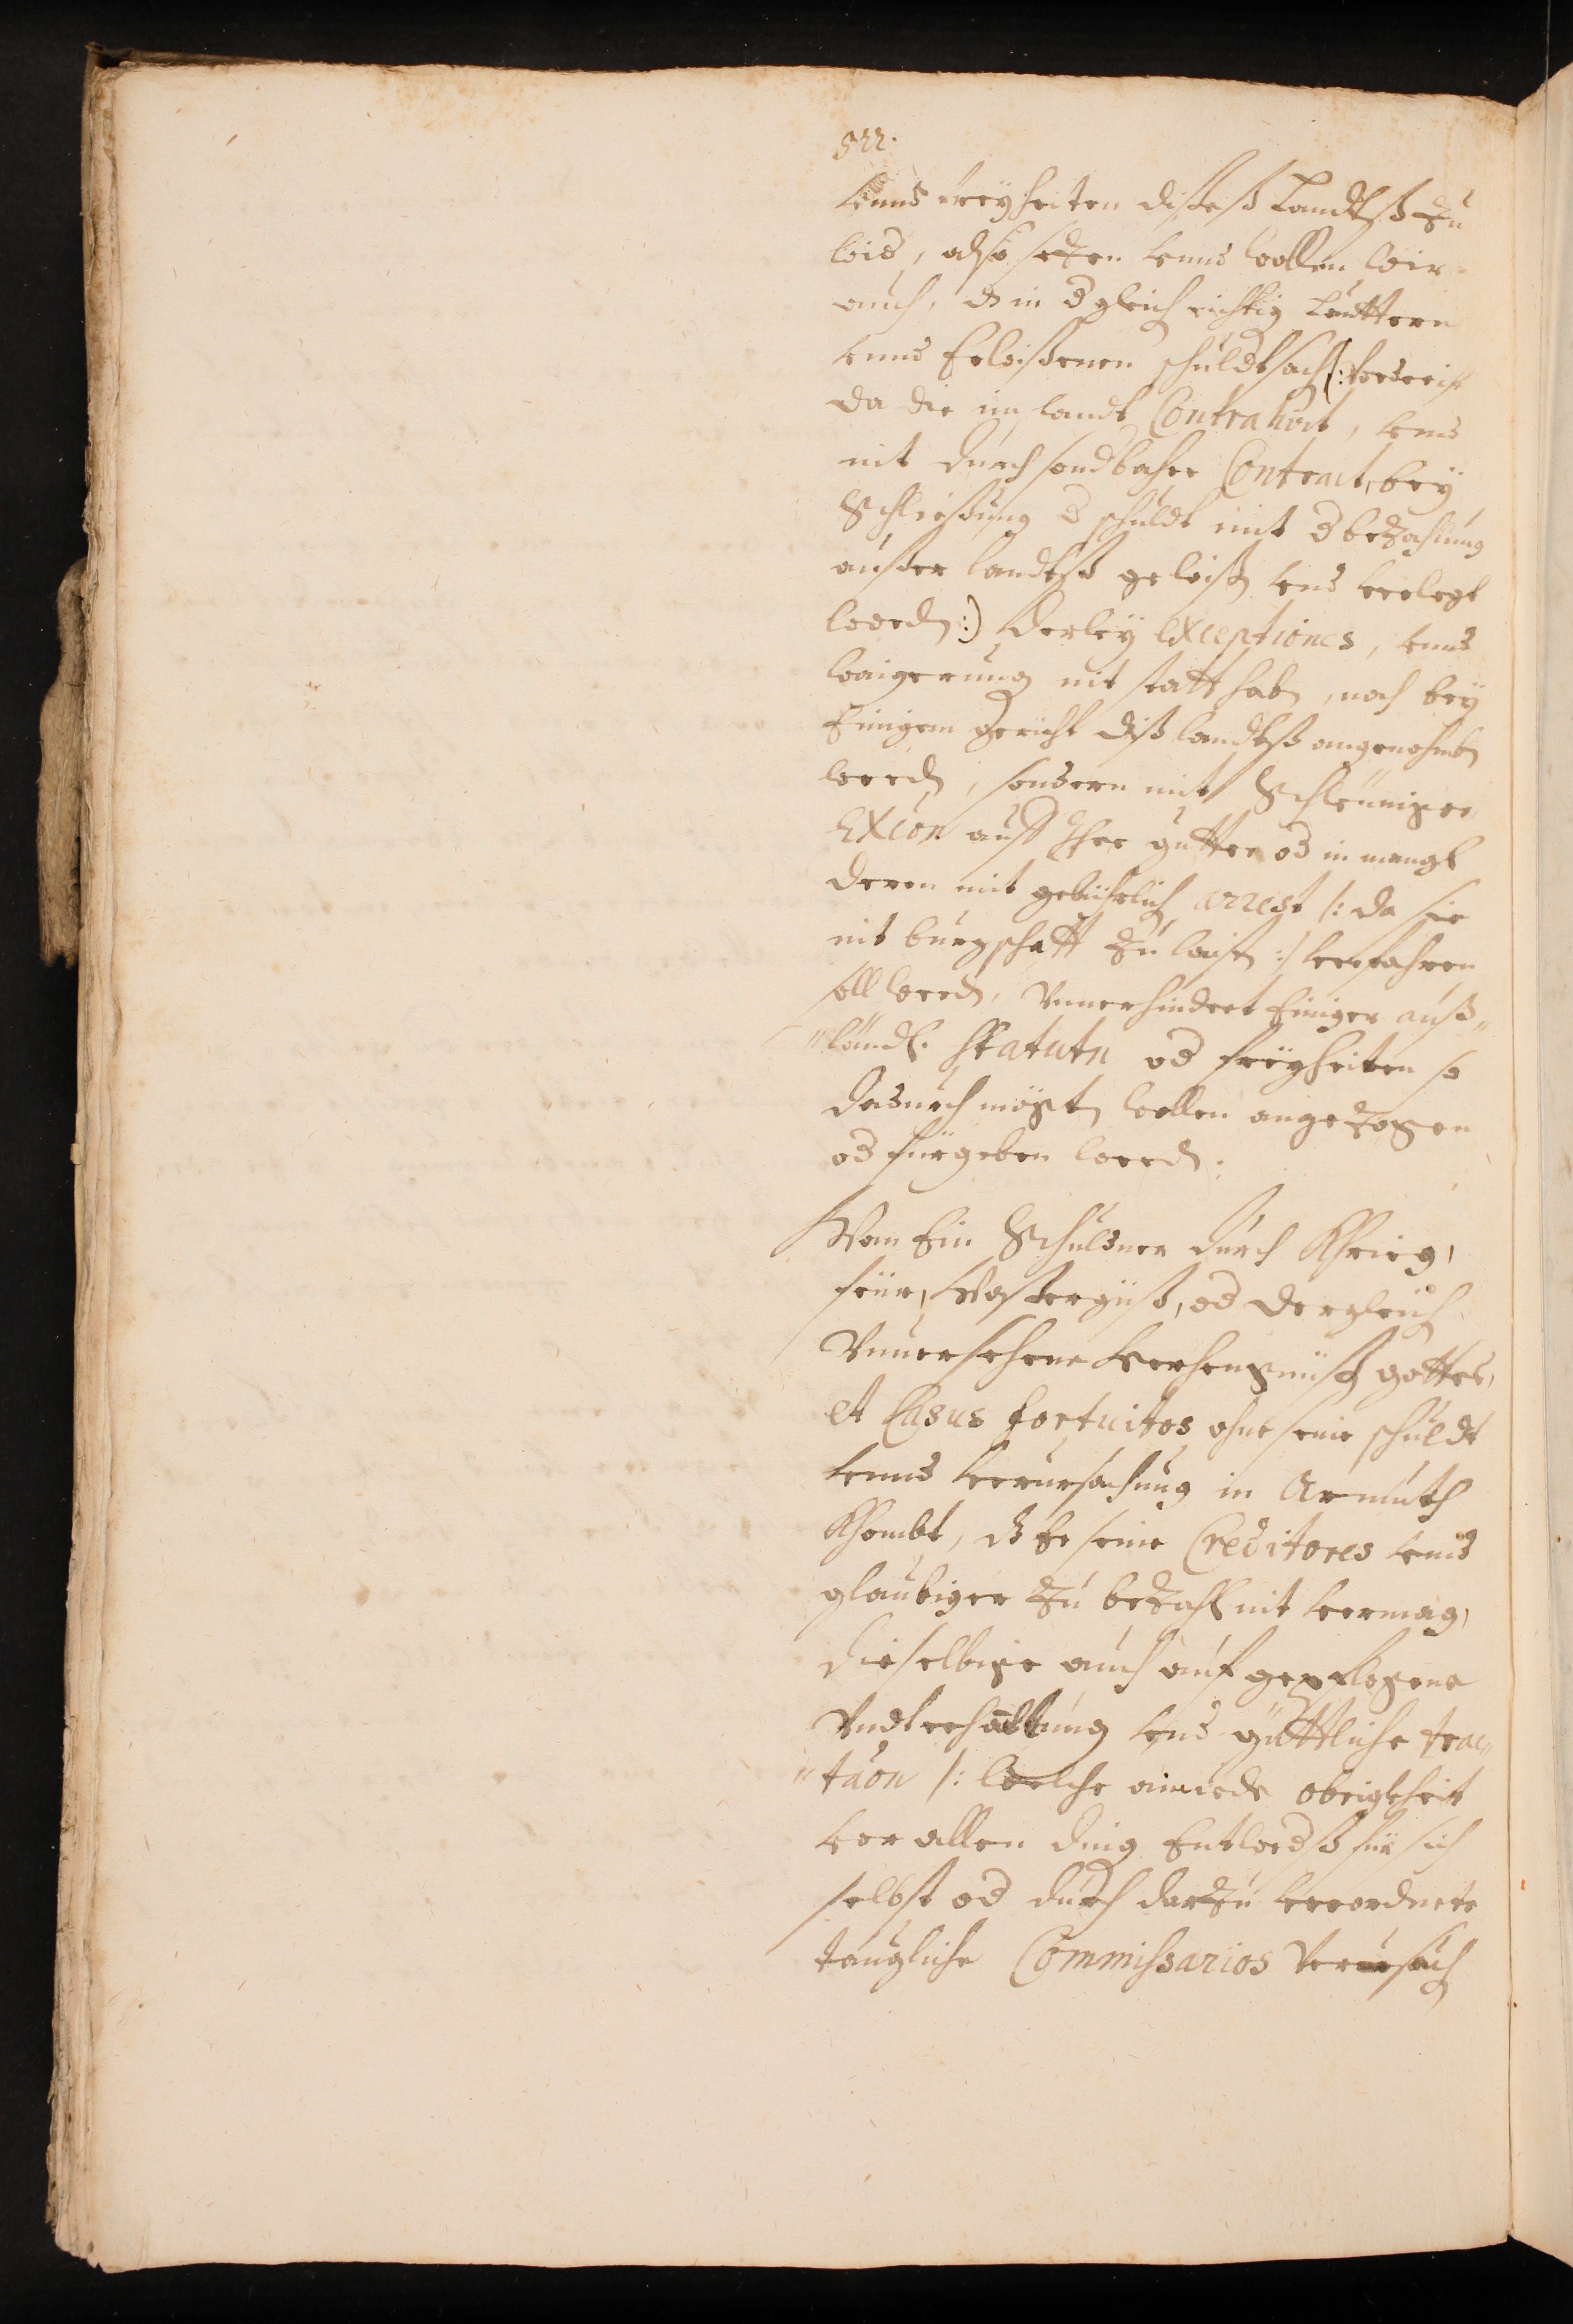 522.
vnnd freyheiten disßeß Landtß zu
wid, also sezen vnnd wollen wir
auch, dz in dgleich richtig lauttern
vnnd Erwisenen schuldtsach /: vorderist
da die im landt Contrahirt, vnnd
nit durch sondbahre Contract, bey
Schliessung d schuldt mit d bezahlung
ausser landtß gewisß vnd verlegt
werdn :/ derley Exceptiones, vnnd
waigerung nit statt habn, noch bey
Einigem Gericht diß landtß angenohmbn
werdn, sondern mit Schleüniger
Exᵒⁿ auff Ihre gütter od in mangl
deren mit gebührlich arrest /: da sie
nit burgschafft zu laistn :/ verfahren
soll werdn, Vnuerhindert Einiger auß„
„ländl. Statutn od freyheiten so
dardurch möchtn wollen angezogen
od fürgeben werdn.
Wan Ein Schuldner durch Khrieg,
feür, Wassergüß, od dergleich
Vnuersehene verhengnußn gottes,
et Casus fortuitos ohne seine schuldt
vnnd verursachung in Armuth
Khombt, dz Er seine Creditores vnnd
glaubiger zu bezahln nit vermag,
dieselbige auch auf gepflogene
Vndterhaltung vnd güttliche trac„
„taòn /: welche ainiede obrigkheit
vor allen ding Entwedß für sich
selbst od durch darzu verordnete
taugliche Commissarios Verursach